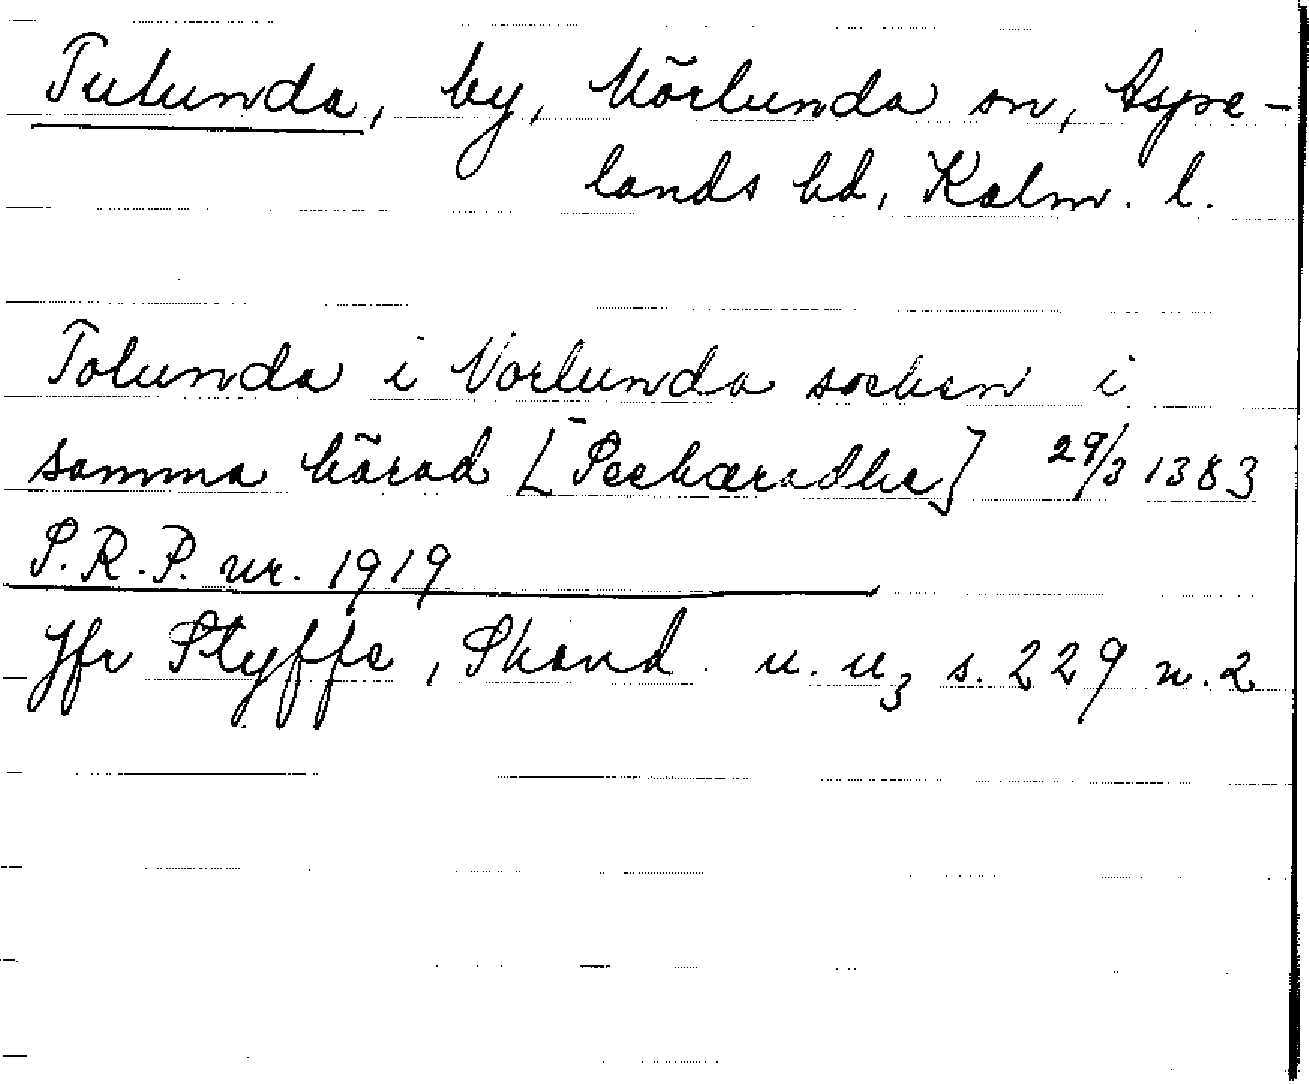 Tulunda, by, Mörlunda sn, Aspe-
lands hd, Kalm. l.
Tolunda i Norlunda socken i
samma härad [Seehæradhe] 29/3 1383
S.R.P. nr. 1919
Jfr Styffe, Skand. u. u3 s. 229 n. 2